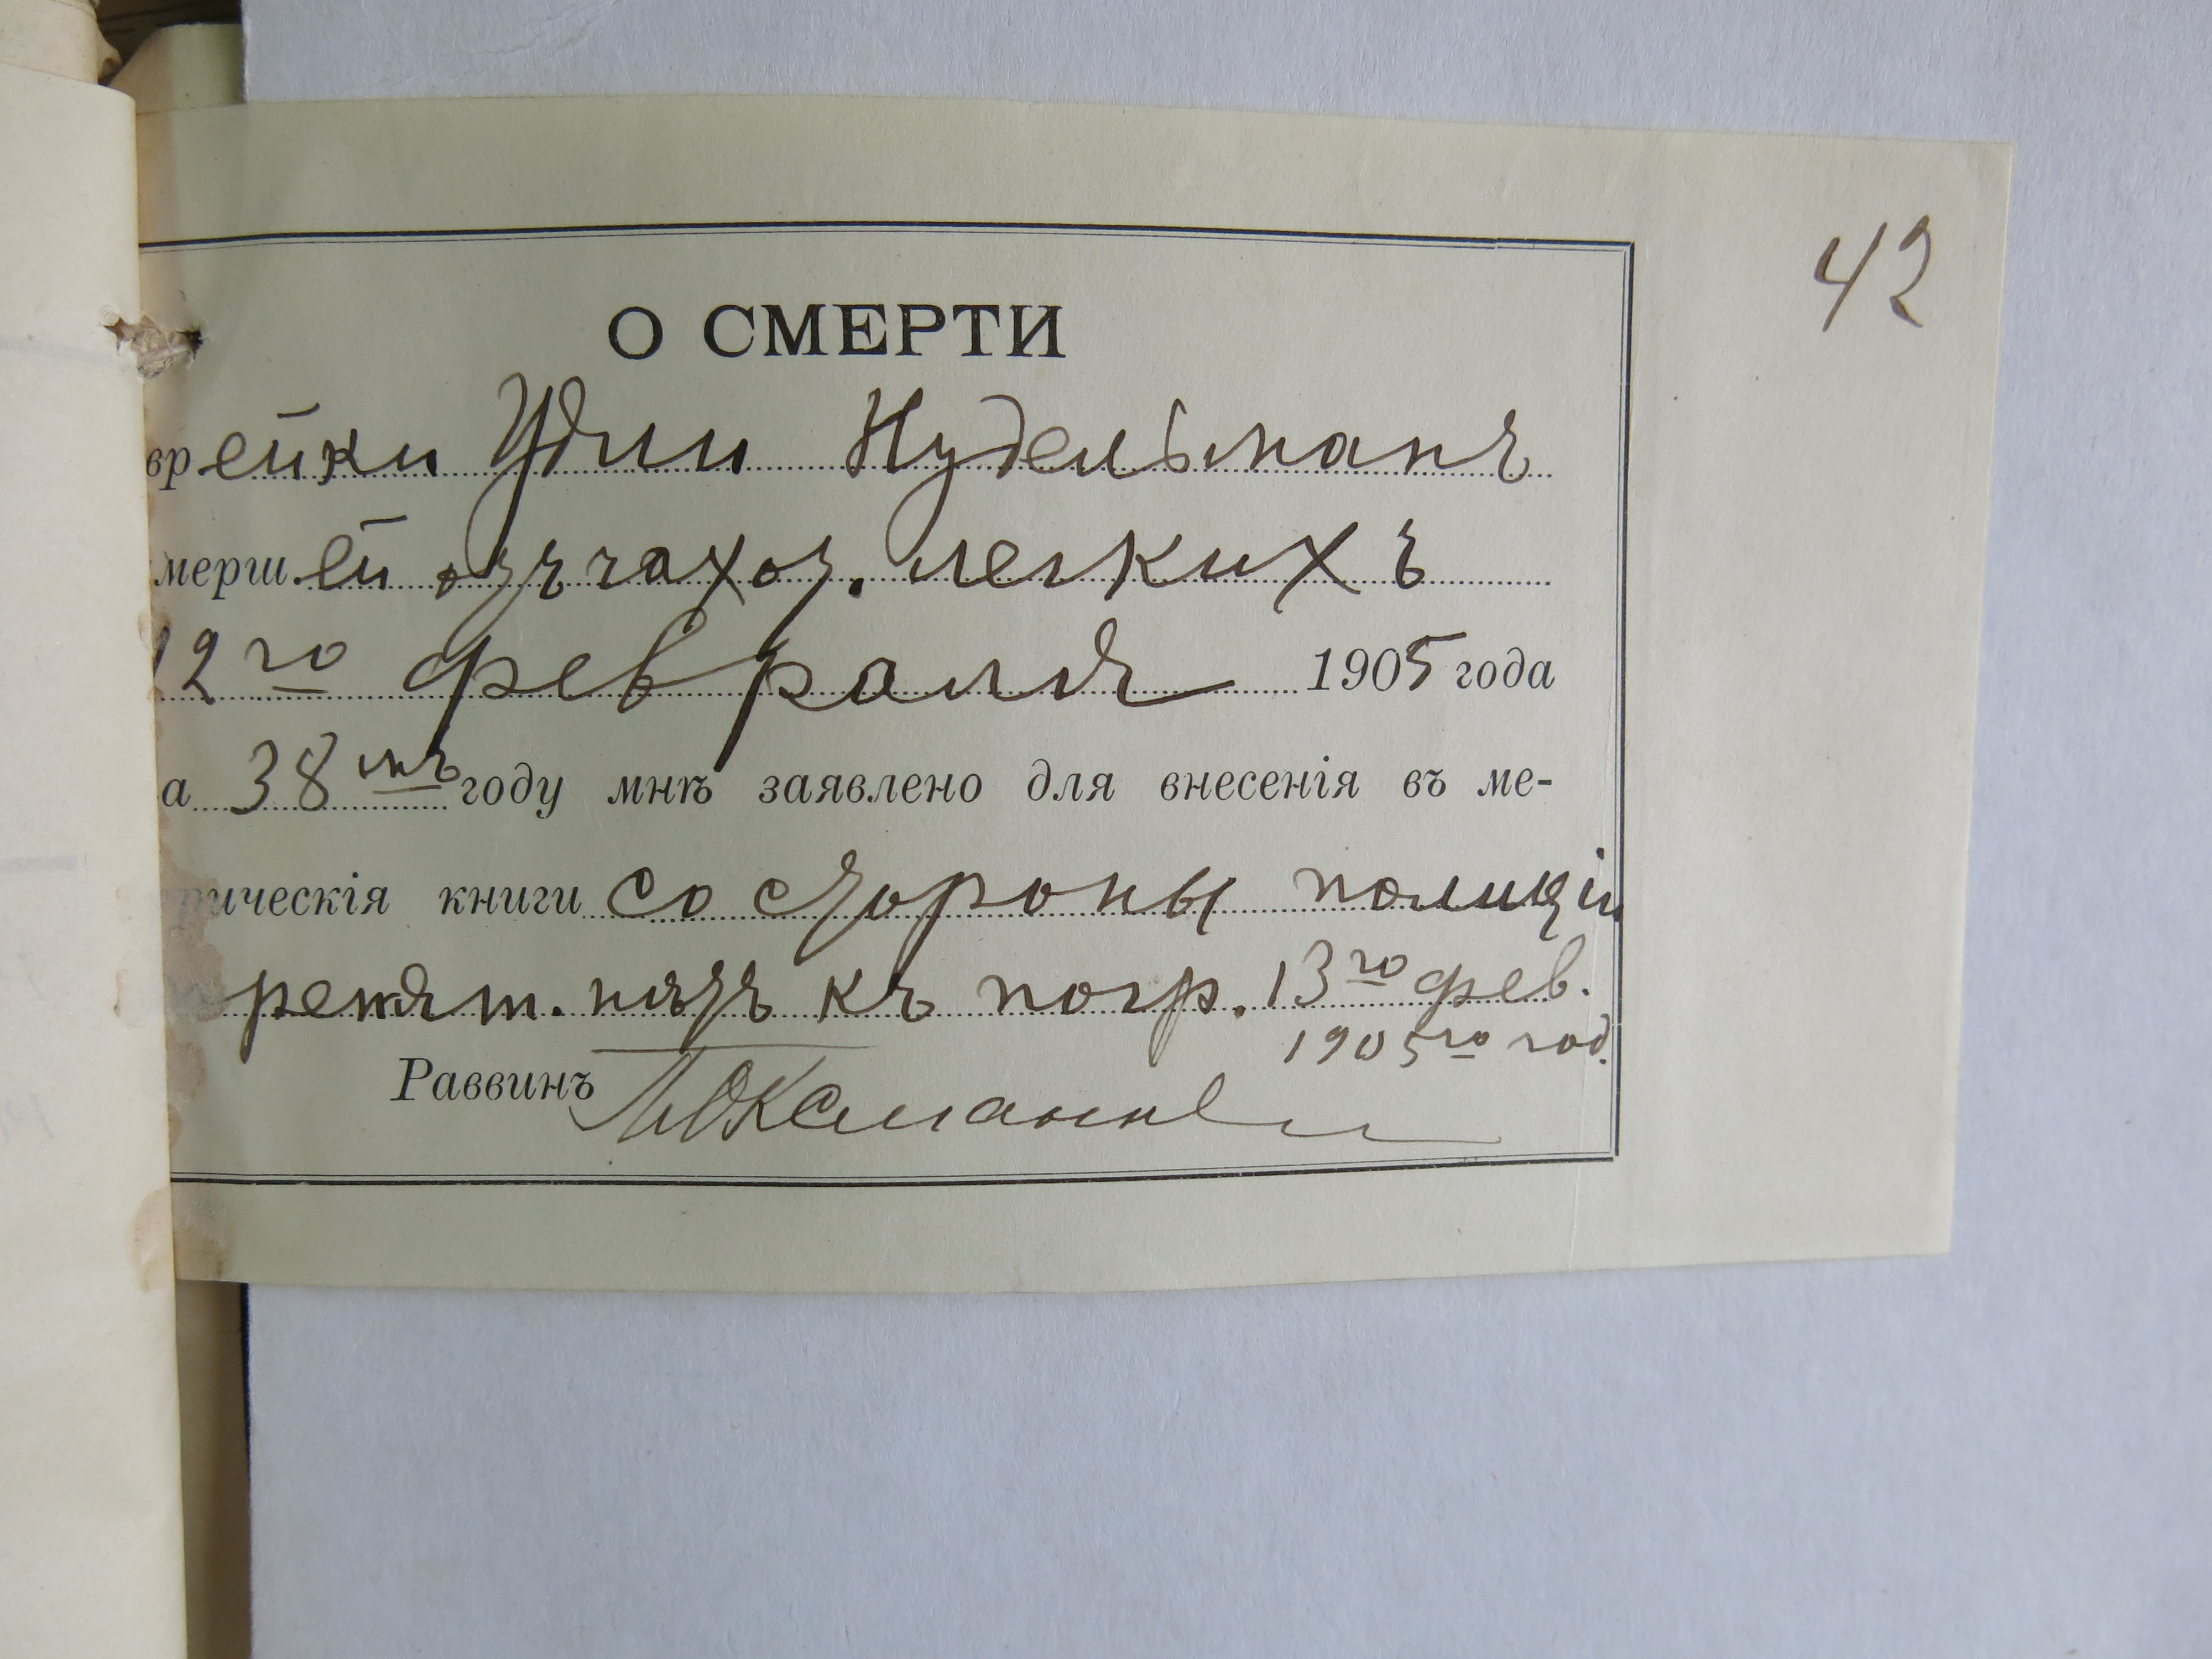 42
О СМЕРТИ
врейки Удии Нудельманъ
мершей отъ чахот. легкихъ
12го февраля 1905 года
а 38мъ году мнѣ заявлено для внесенія въ ме-
рическія книги со стороны полиціи
препят. нѣтъ къ погр. 13го фев.
1905го год.
Раввинъ